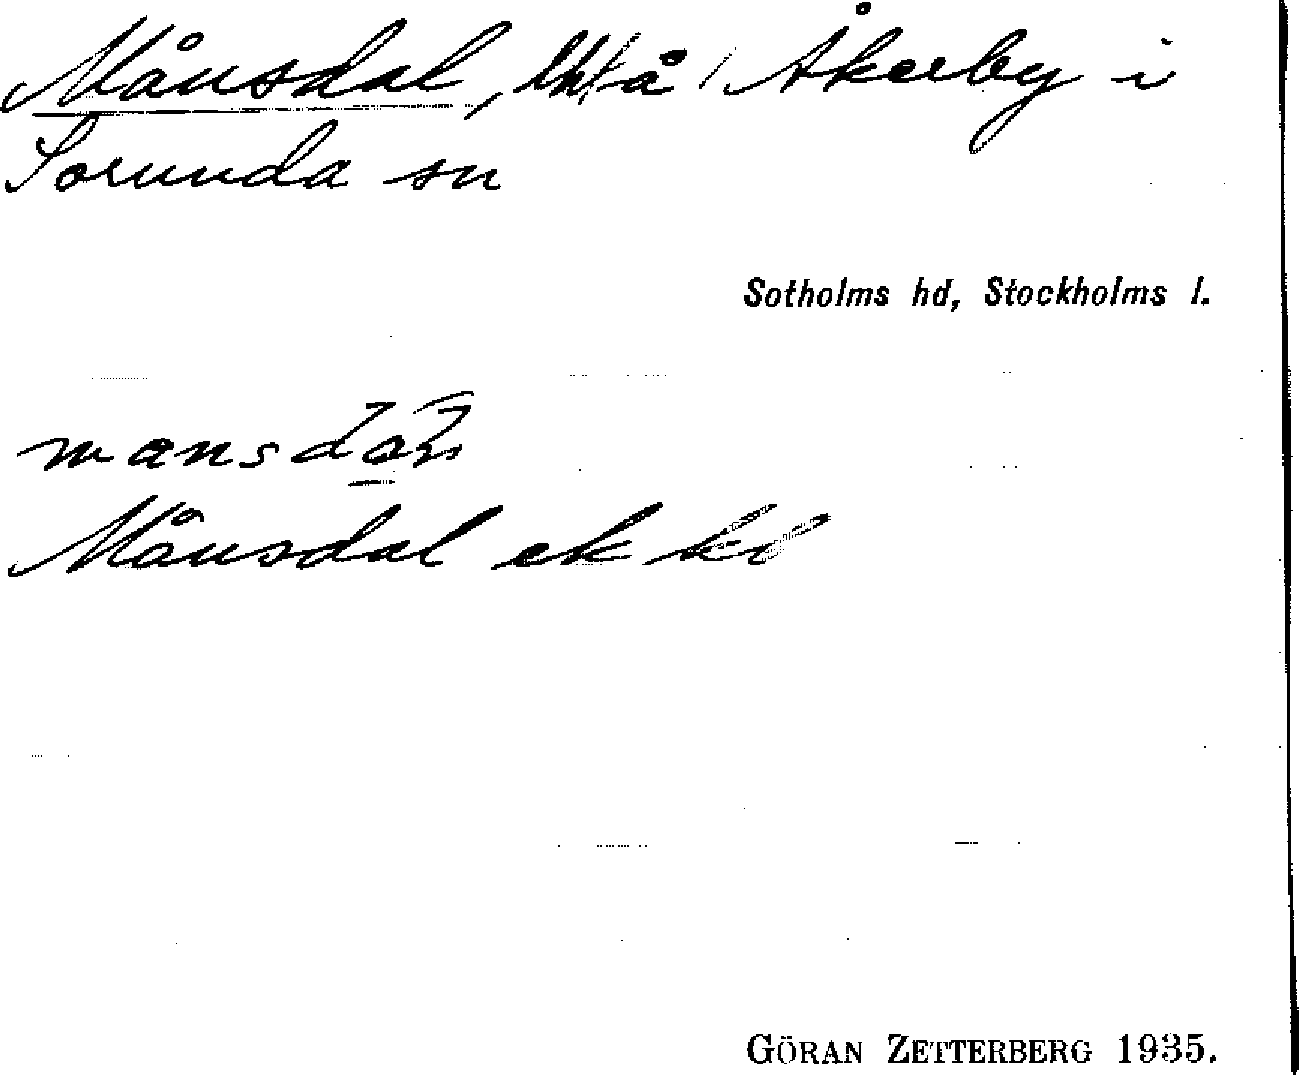 Månsdal, lht å Åkerby i
Sorunda sn
Sotholms hd, Stockholms l.
Månsdal ek kb
GÖRAN ZETTERBERG 1935.